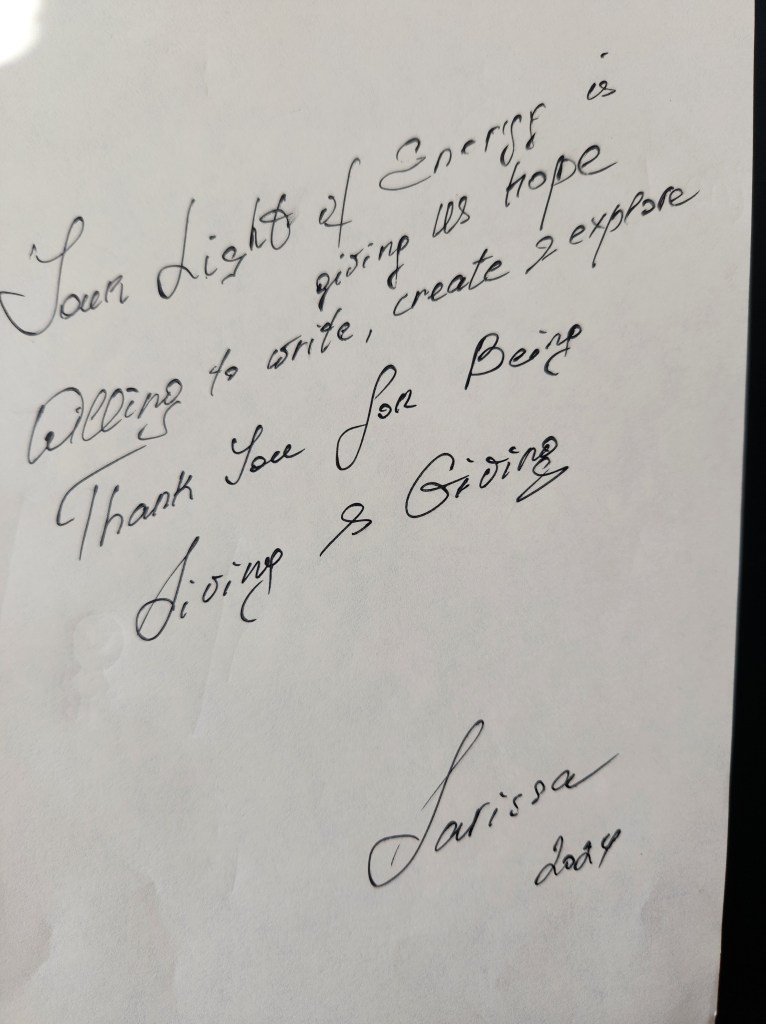 Your Light of Energy is
giving us hope
Willing to write, create & explore
Thank You for Being
Living & Giving
Larissa
2024